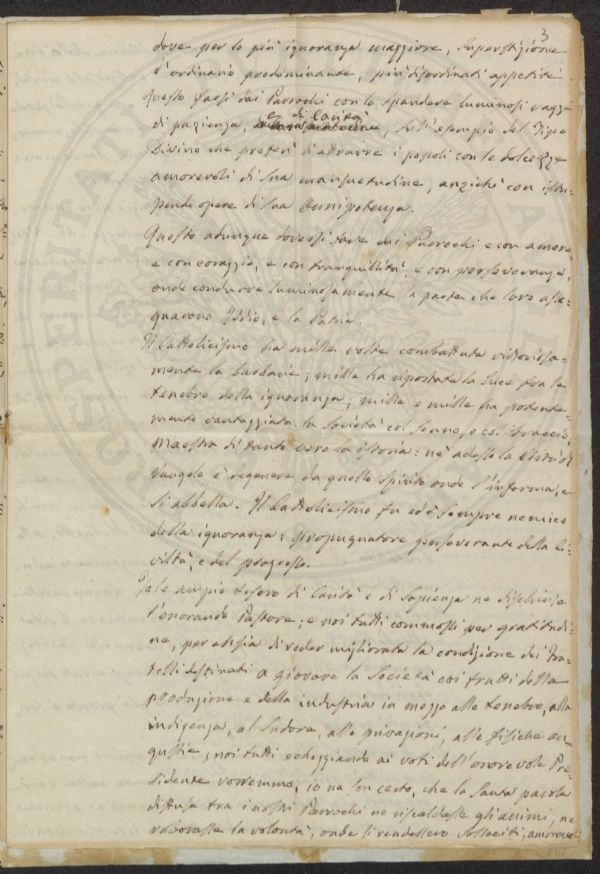 3
dove per lo più ignoranza maggiore, superstizione
è ordinario predominante, più disordinati appetiti.
Questo farsi dai Parrochi con lo spandere luminosi raggi
di pazienza, e di carità, sull'esempio del Tipo
Divino che preferì d'attrarre i popoli con le dolcezze
amorevoli di sua mansuetudine, anziché con istu-
pende opere di sua Onnipotenza.
Questo adunque doversi fare dai Parrochi e con amore
e con coraggio, e con tranquillità, e con perseveranza,
onde condurre luminosamente la parte che loro asse-
gnarono Iddio, e la Patria.
Il Cattolicismo ha mille volte combattuta vittoriosa-
mente la barbarie; mille ha riportata la luce fra le
tenebre della ignoranza; mille e mille ha potente-
mente vantaggiata la Società col senno, e col braccio.
Maestra di tanto vero la istoria: nè adesso la Civiltà
Vangelo è degenere da quello spirito onde s'informa, e
si abbella. Il Cattolicismo fu ed è sempre nemico
della ignoranza; propugnatore perseverante della Ci-
viltà, e del progresso.
Tale ampio tesoro di Carità e di Sapienza ne dischiuse
l'onorando Pastore; e noi tutti commossi per gratitudi-
ne, per ansia di veder migliorata la condizione dei fra-
telli destinati a giovare la Società coi frutti della
produzione e della industria in mezzo alle tenebre, alla
indigenza, al sudore, alle privazioni, alle fisiche an-
gustie; noi tutti echeggiando ai voti dell'onorevole Pre-
sidente vorremmo, io ne son certo, che la Santa parola
diffusa tra i nostri Parrochi ne riscaldasse gli animi, ne
roborasse la volontà, onde si rendessero solleciti, amorevoli